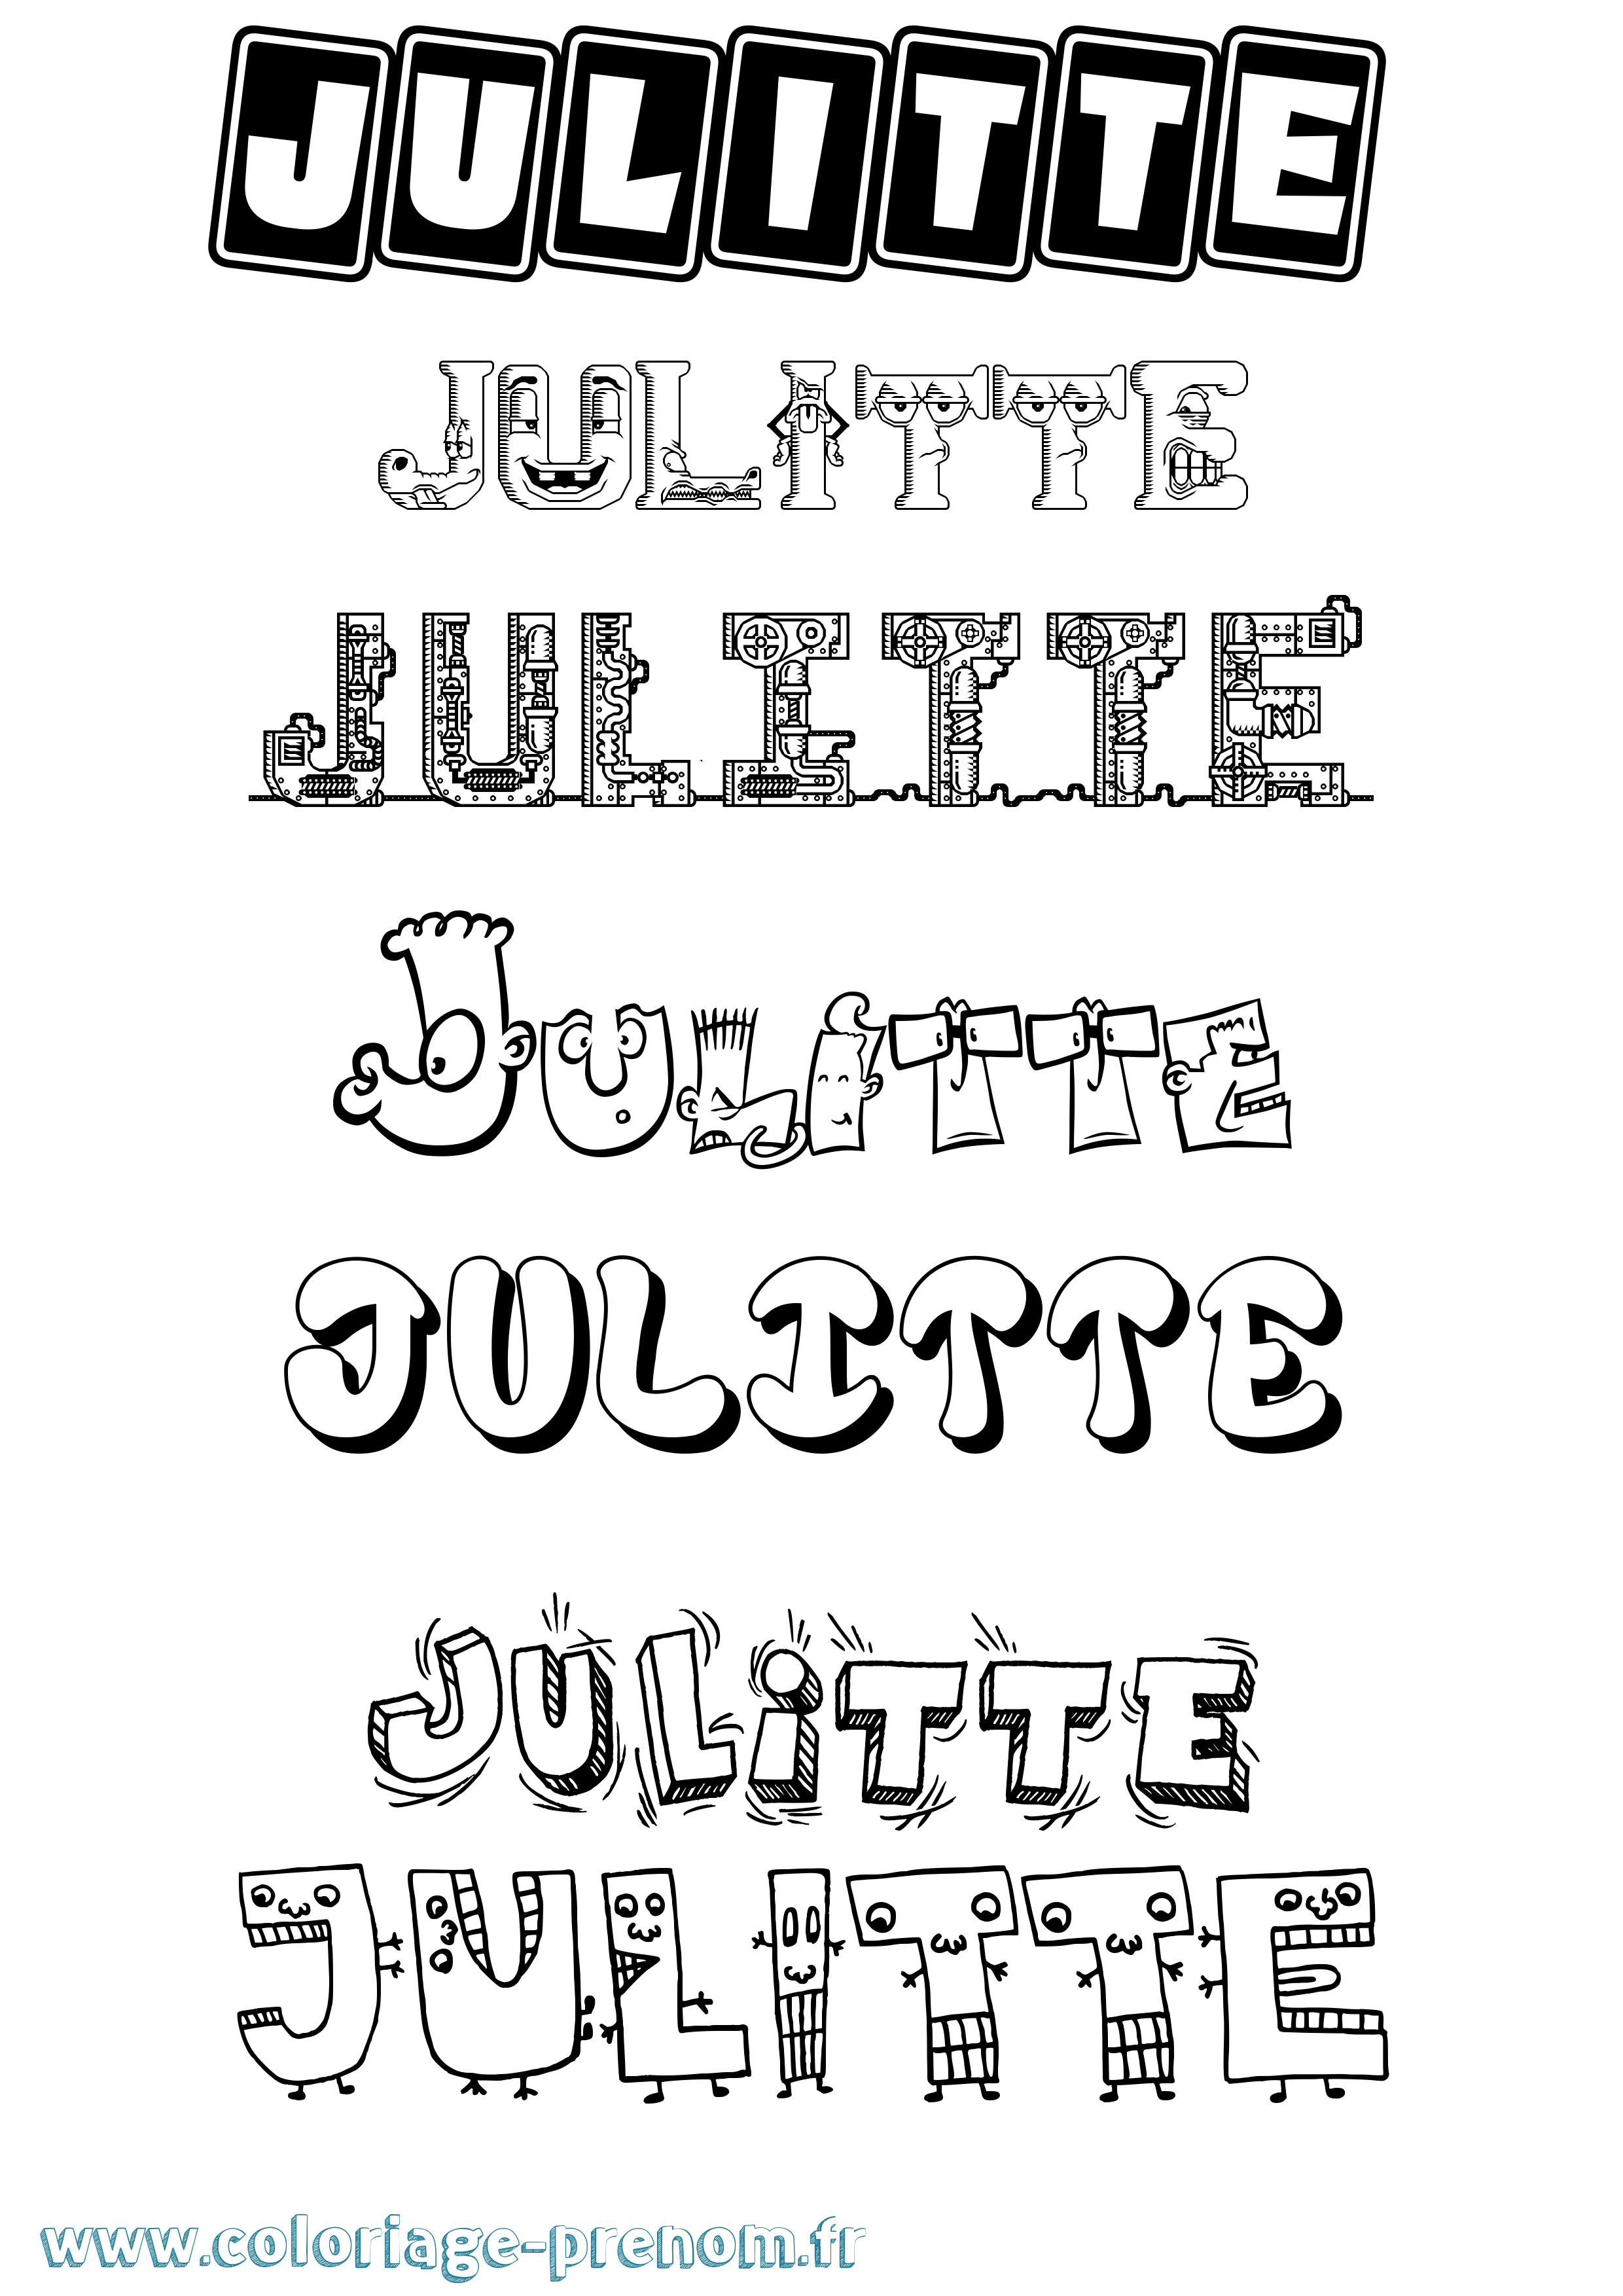 JULITTE
JULITTE
JULITTE
JULITTE
JULITTE
JULiTTE
JULITTE
www.coloriage-prenom.fr